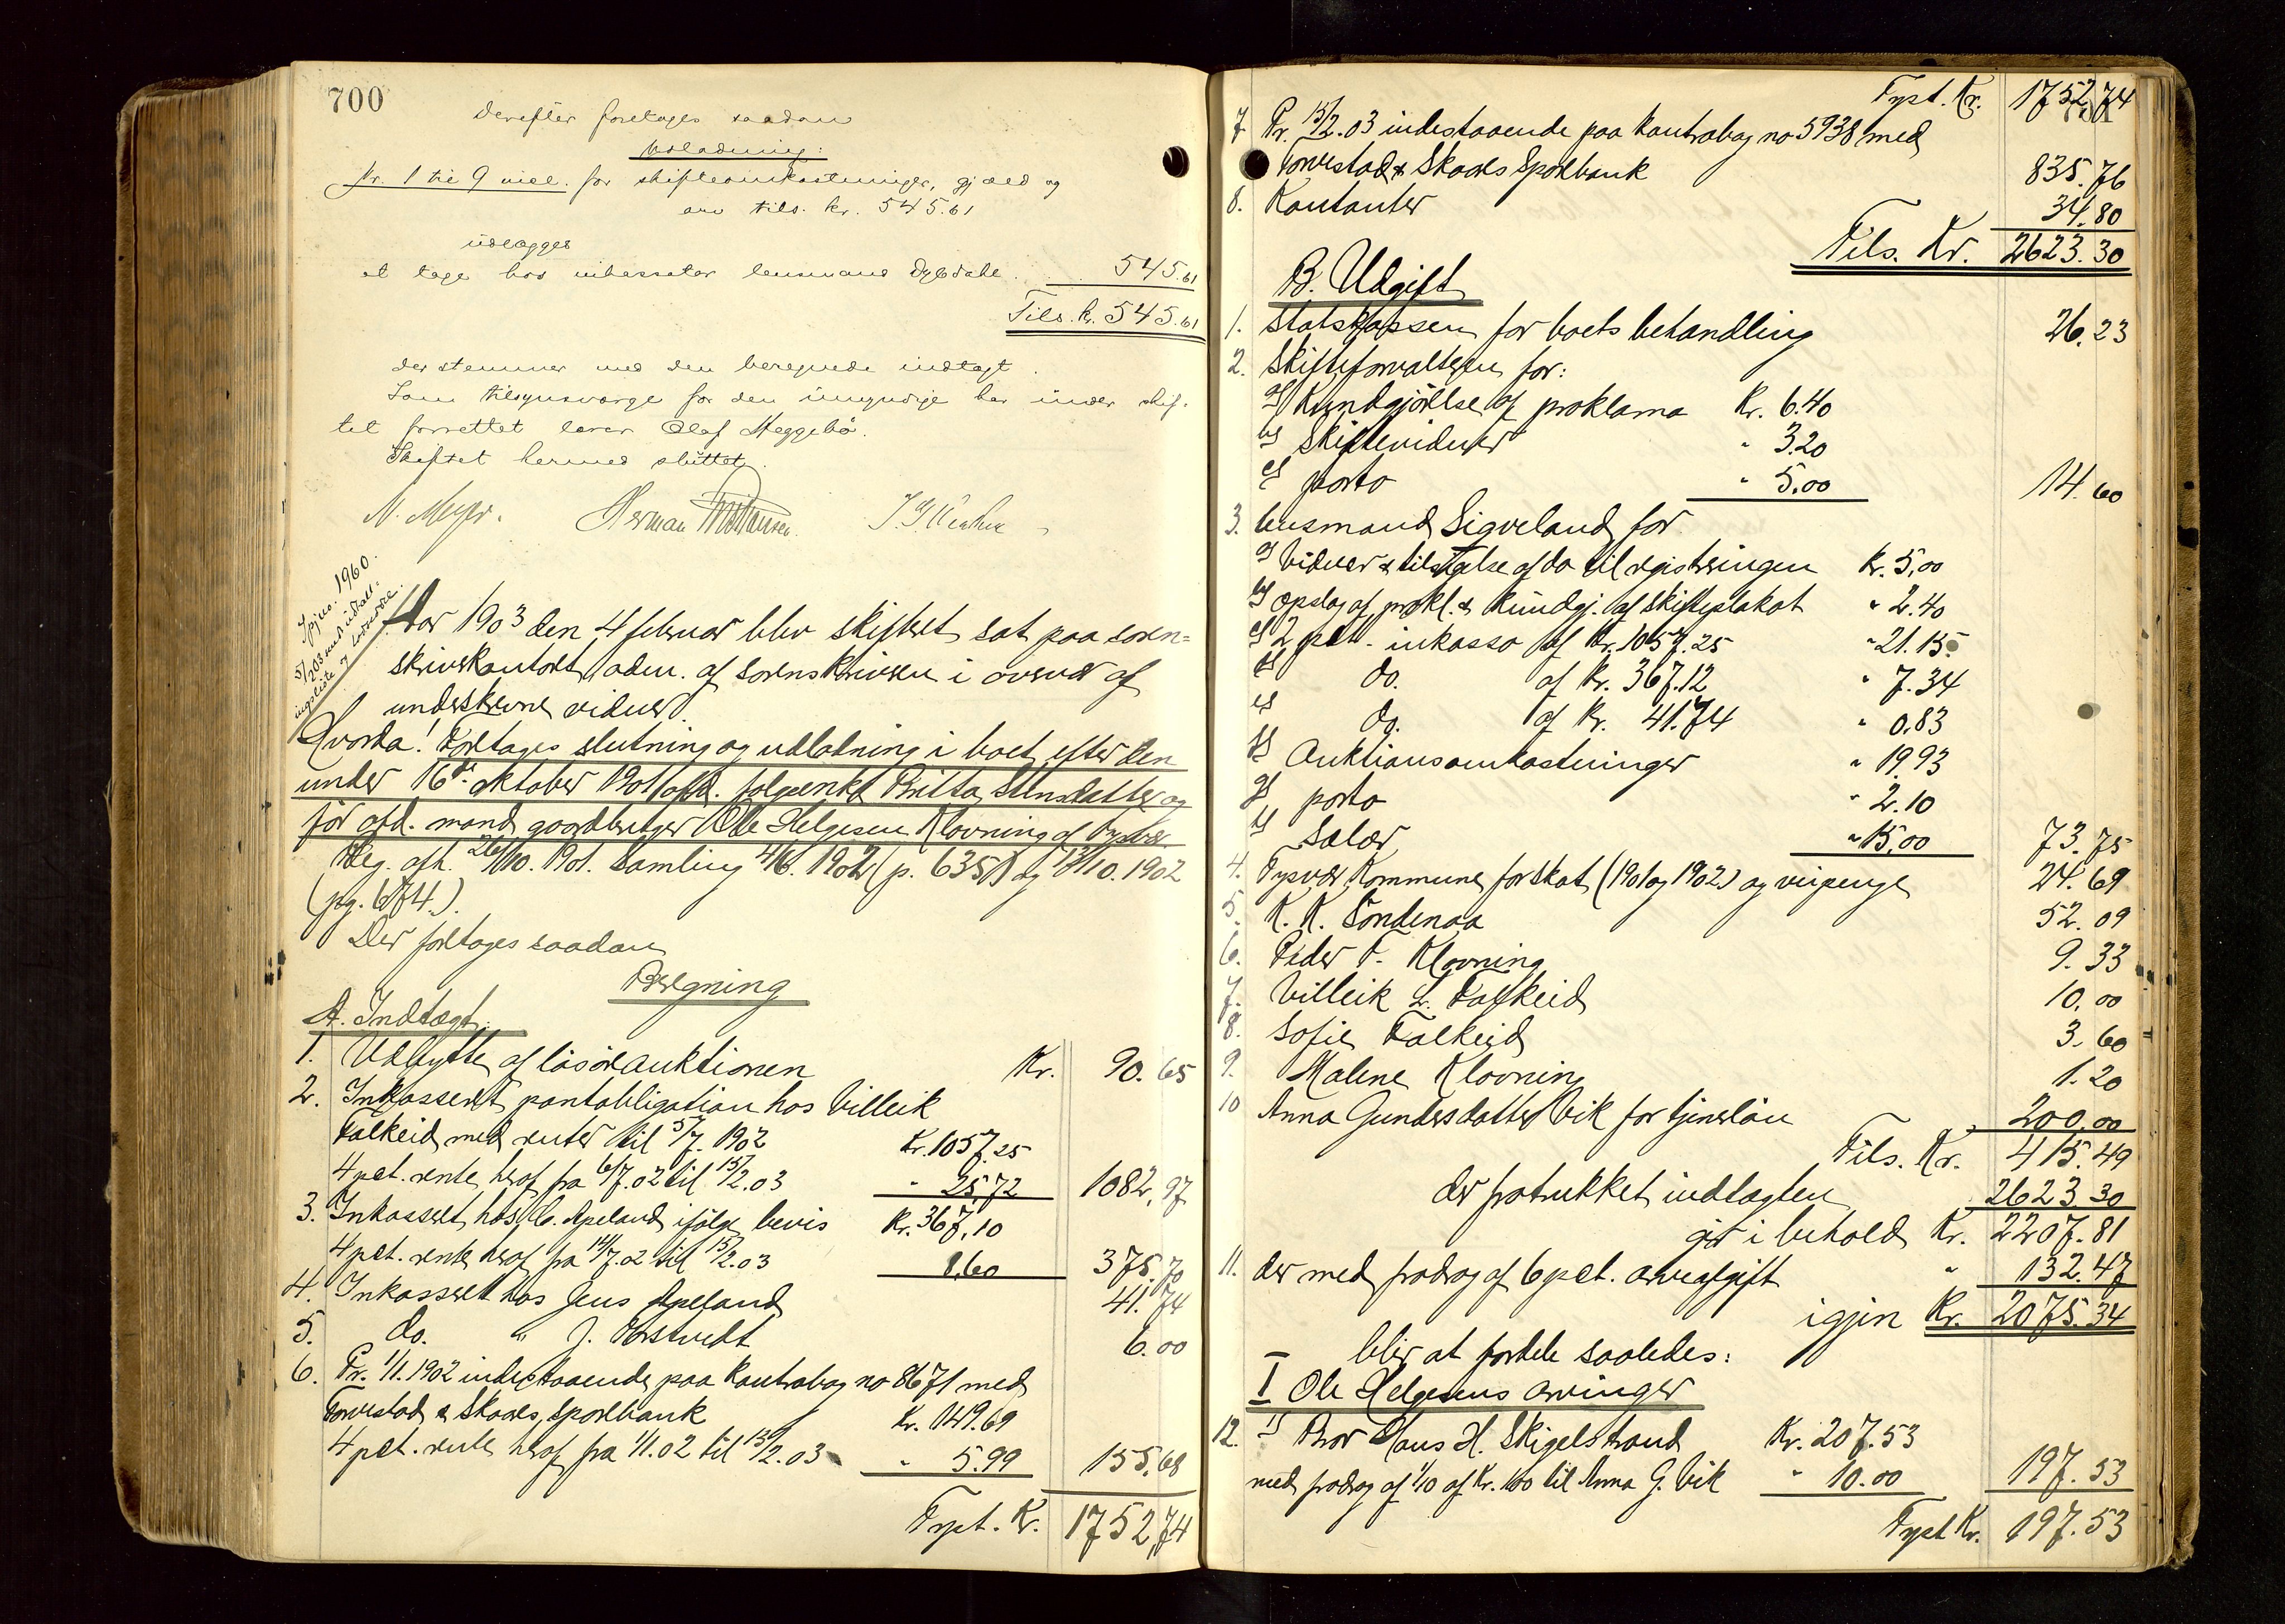 700
Derefter foretages saadan
Udlodning:
Nr. 1 til 9 incl. for skifteomkostninger, gjæld og
arv tils. kr. 545.61
udlægges
at tage hos inkassator lensmand Dybdahl 545.61
Tils. kr. 545.61
der stemmer med den beregnede indtægt.
Som tilsynsværge for den umyndige har under skif-
tet forrettet lærer Olaf Heggebø.
Skiftet hermed sluttet.
N. Meyer. Herman
Aar 1903 den 4 februar blev skifteret sat paa soren-
skriverkontoret, adm. af sorenskriveren i overvær af
underskrevne vidner.
Jnr. 1960.
5/2 03 med
ingsliste og
Hvorda! Foretages slutning og udlodning i boet efter den
under 16de oktober 1901 afd. føderaadsenke Britta Stensdatter og
før afd. mand gaardbruger Ole Helgesen Klovning af Tysvær.
Reg. afh. 26/10. 1901. Samling 4/6. 1902 (p. 635) og 13/10. 1902
(pg. 674.).
Der foretages saadan
Beregning
A. Indtægt:
1. Udbytte af løsøreauktionen Kr. 90.65
2. Inkasseret pantobligation hos Villeik
Falkeid med renter til 5/7. 1902 Kr. 1057.25
4 pct. rente heraf fra 6/7. 02 til 15/2. 03 " 25,72 1082,97
3. Inkasseret hos C. Apeland ifølge bevis Kr. 367,10
4 pct. rente heraf fra 14/7. 02 til 15/2. 03 8,60 375.70
4. Inkasseret hos Jens Apeland 41.74
5. do. " J. 6.00
6. Pr. 1/1. 1902 indestaaende paa Kontrabog no 8671 med
Torvestad & Skaares Sparebank Kr. 149.69
4 pct. rente heraf fra 1/1. 02 til 15/2. 03 " 5.99 155.68
Trpt. Kr. 1752,74
Trpt. Kr. 1752,74
701
7. Pr. 15/2. 03 indestaaende paa Kontrabog no 5938 med
Torvestad & Skaares Sparebank 835.76
8. Kontanter 34.80
Tils. Kr. 2623.30
B. Udgift
1. Statskassen for boets behandling 26.23
2. Skifteforvalteren for:
a) Kundgjørelse af proklama Kr. 6.40
b) Skiftevidner " 3.20
c) porto " 5.00 14.60
3. lensmand Sigveland for
a) Vidner & tilsigelse af do til registreringen Kr. 5,00
b) opslag af prokl. & kundgj. af skifteplakat " 2.40
c) 2 pct. inkasso af Kr. 1057.25 " 21.15
d) do. af Kr. 367.12 " 7.34
e) do. af Kr. 41.74 " 0,83
f) Auktionsomkostninger " 19.93
g) porto " 2.10
h) Salær " 15,00 73.75
4. Tysvær Kommune for skat (1901 og 1902) og veipenge 24.69
5. K. K. Søndenaa 52.09
6. Peder T. Klovning 9.33
7. Villeik L. Falkeid 10.00
8. Sofie Falkeid 3.60
9. Malene Klovning 1.20
10 Anna Gundersdatter Vik for tjenerløn 200.00
Tils. Kr. 415.49
der fratrukket indtægten 2623.30
gir i behold Kr. 2207.81
11. der med fradrag af 6 pct. arveafgift " 132.47
igjen Kr. 2075.34
blir at fordele saaledes:
I Ole Helgesens arvinger
12. 1) Bror Hans H. Skigelstrand Kr. 207.53
med fradrag af 1/10 af Kr. 100 til Anna G. Vik " 10.00 197.53
Trpt Kr. 197.53